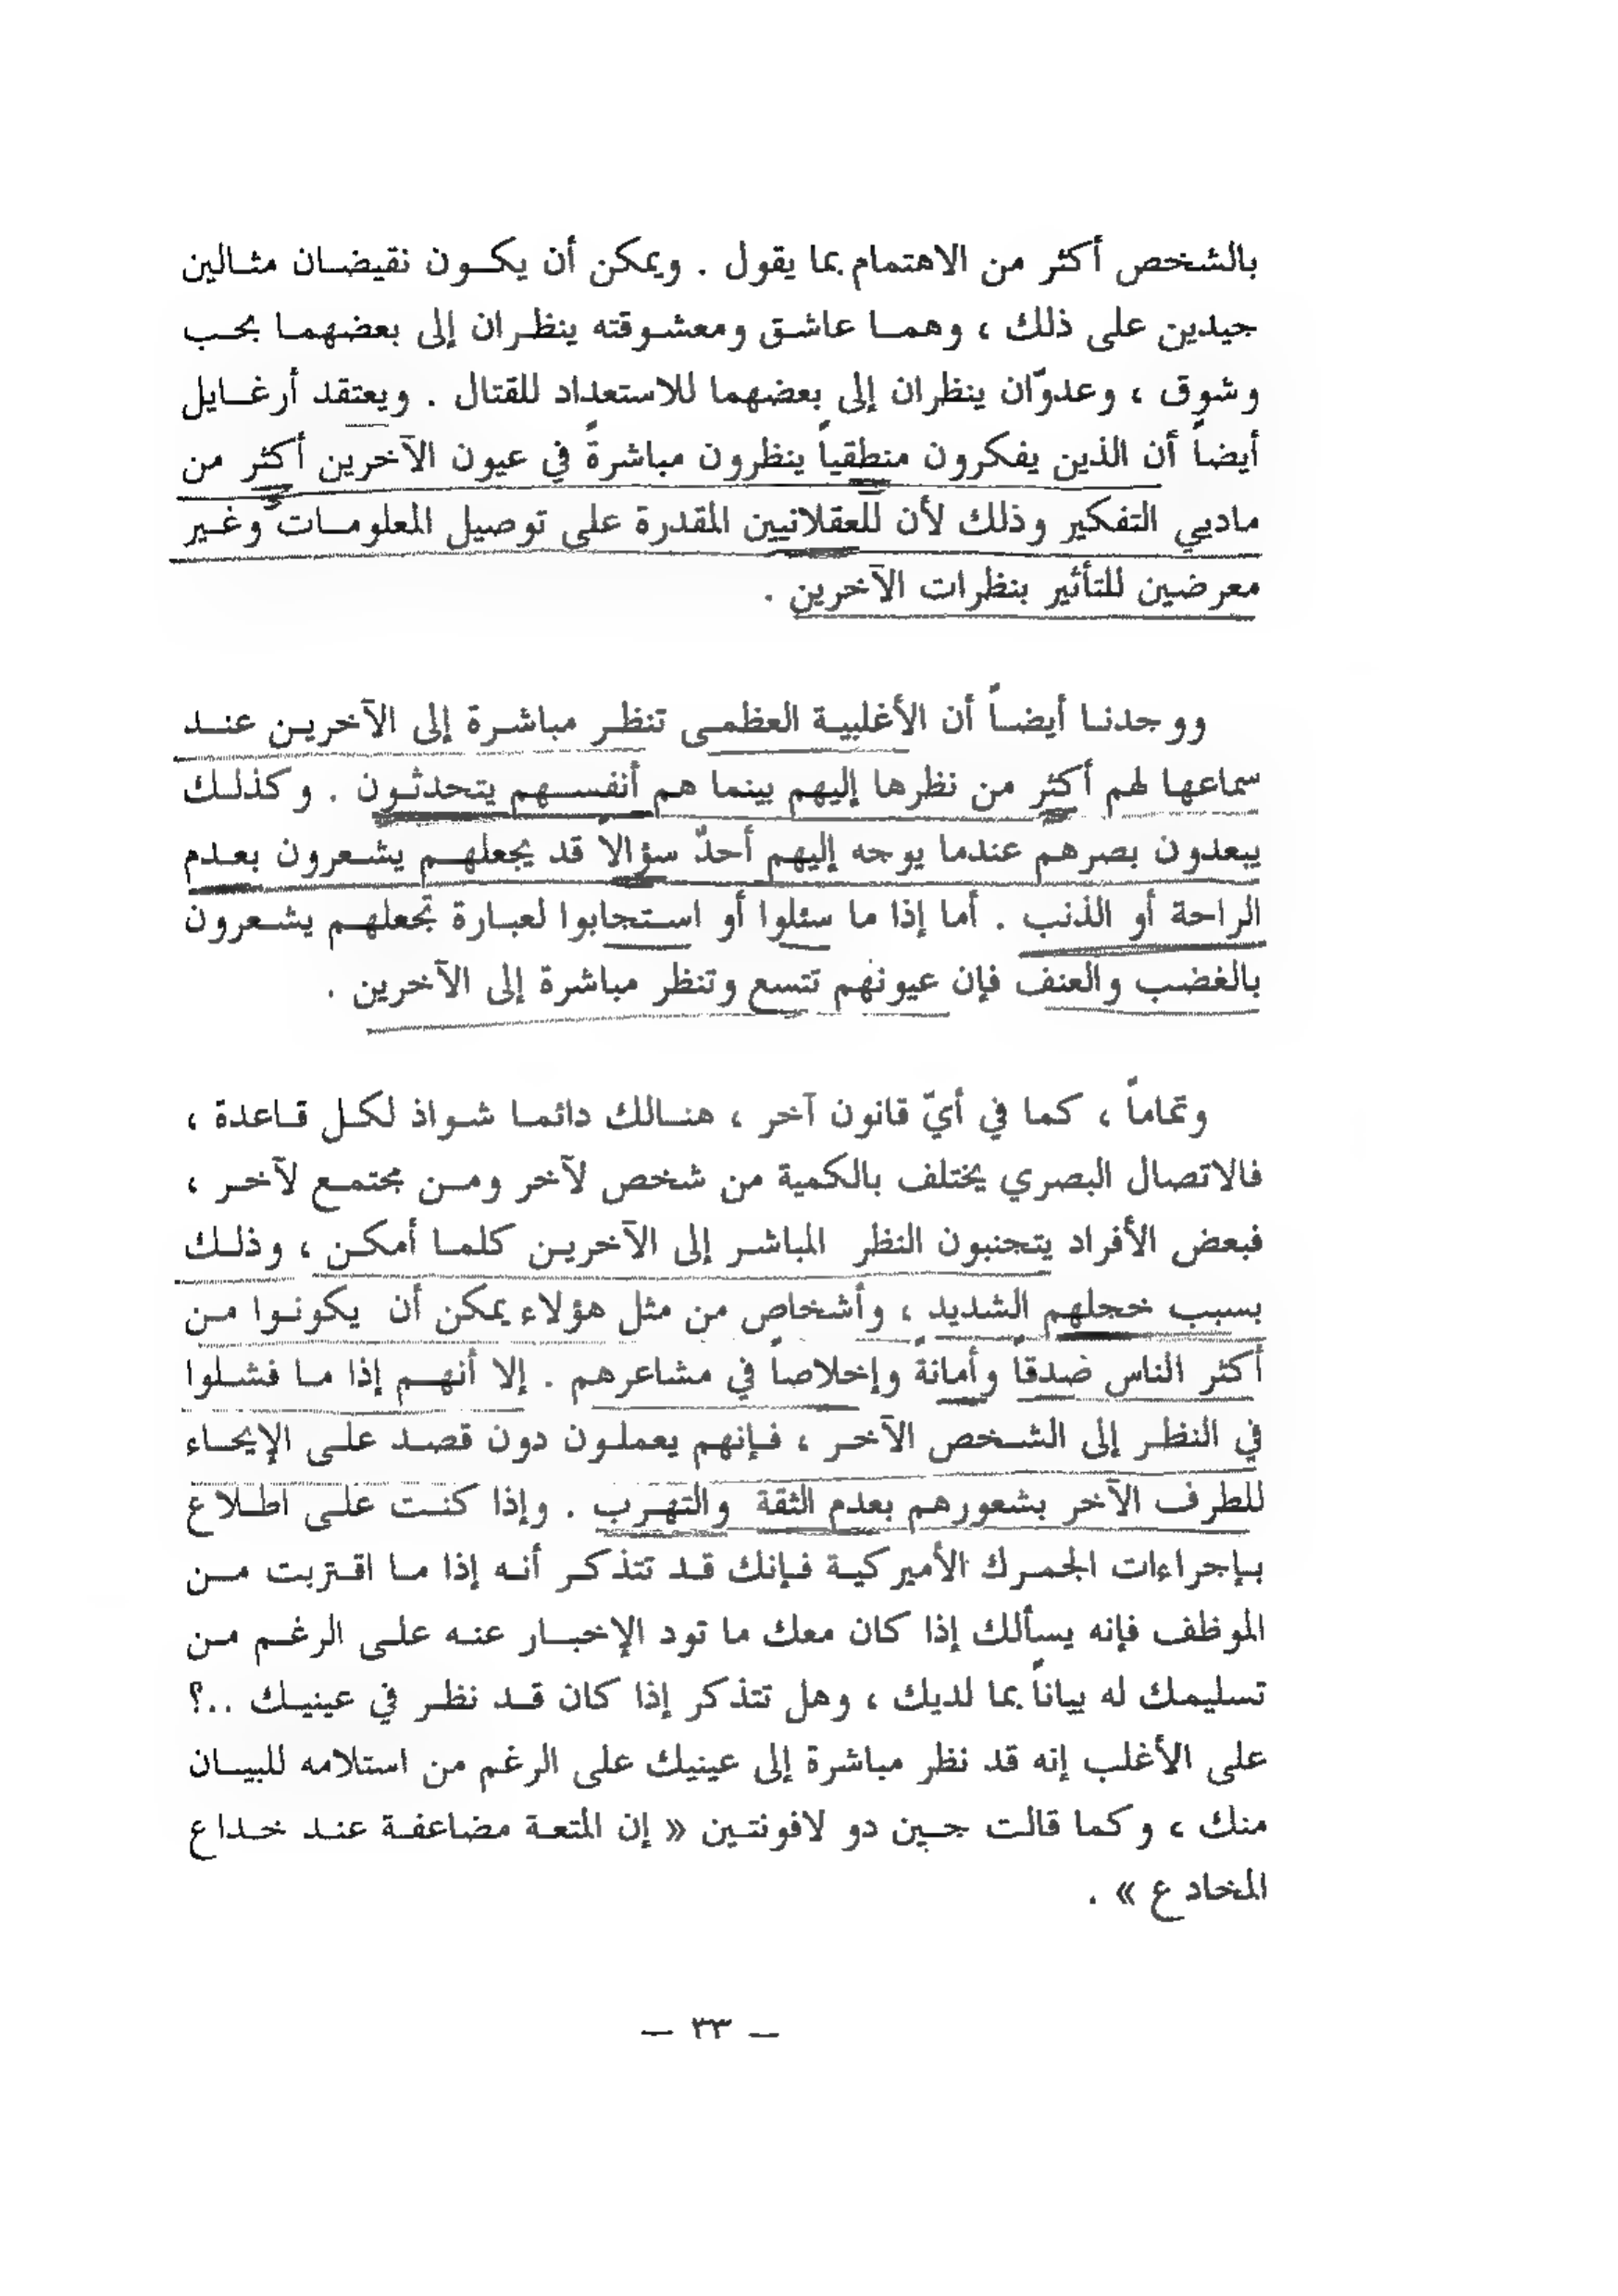 بالشخص أكثر من الاهتمام بما يقول . ويمكن أن يكون نقيضان مثالين
جيدين على ذلك ، وهما عاشق ومعشوقته ينظران إلى بعضهما بحب
وشوق ، وعدوّان ينظران إلى بعضهما للاستعداد للقتال . ويعتقد أرغايل
أيضاً أن الذين يفكرون منطقياً ينظرون مباشرةً في عيون الآخرين أكثر من
ماديي التفكير وذلك لأن للعقلانيين المقدرة على توصيل المعلومات وغير
معرضين للتأثير بنظرات الآخرين .
ووجدنا أيضاً أن الأغلبية العظمى تنظر مباشرة إلى الآخرين عند
سماعها لهم أكثر من نظرها إليهم بينما هم أنفسهم يتحدثون . وكذلك
يبعدون بصرهم عندما يوجه إليهم أحدٌ سؤالاً قد يجعلهم يشعرون بعدم
الراحة أو الذنب . أما إذا ما سئلوا أو استجابوا لعبارة تجعلهم يشعرون
بالغضب والعنف فإن عيونهم تتسع وتنظر مباشرة إلى الآخرين .
وتماماً ، كما في أيّ قانون آخر ، هنالك دائما شواذ لكل قاعدة ،
فالاتصال البصري يختلف بالكمية من شخص لآخر ومن مجتمع لآخر ،
فبعض الأفراد يتجنبون النظر المباشر إلى الآخرين كلما أمكن ، وذلك
بسبب خجلهم الشديد ، وأشخاص من مثل هؤلاء يمكن أن يكونوا من
أكثر الناس صدقاً وأمانةً وإخلاصاً في مشاعرهم . إلا أنهم إذا ما فشلوا
في النظر إلى الشخص الآخر ، فإنهم يعملون دون قصد على الإيحاء
للطرف الآخر بشعورهم بعدم الثقة والتهرب . وإذا كنت على اطلاع
بإجراءات الجمرك الأميركية فإنك قد تتذكر أنه إذا ما اقتربت من
الموظف فإنه يسألك إذا كان معك ما تود الإخبار عنه على الرغم من
تسليمك له بياناً بما لديك ، وهل تتذكر إذا كان قد نظر في عينيك ..؟
على الأغلب إنه قد نظر مباشرة إلى عينيك على الرغم من استلامه للبيان
منك ، وكما قالت جين دو لافونتين « إن المتعة مضاعفة عند خداع
المخادع » .
— ٣٣ —